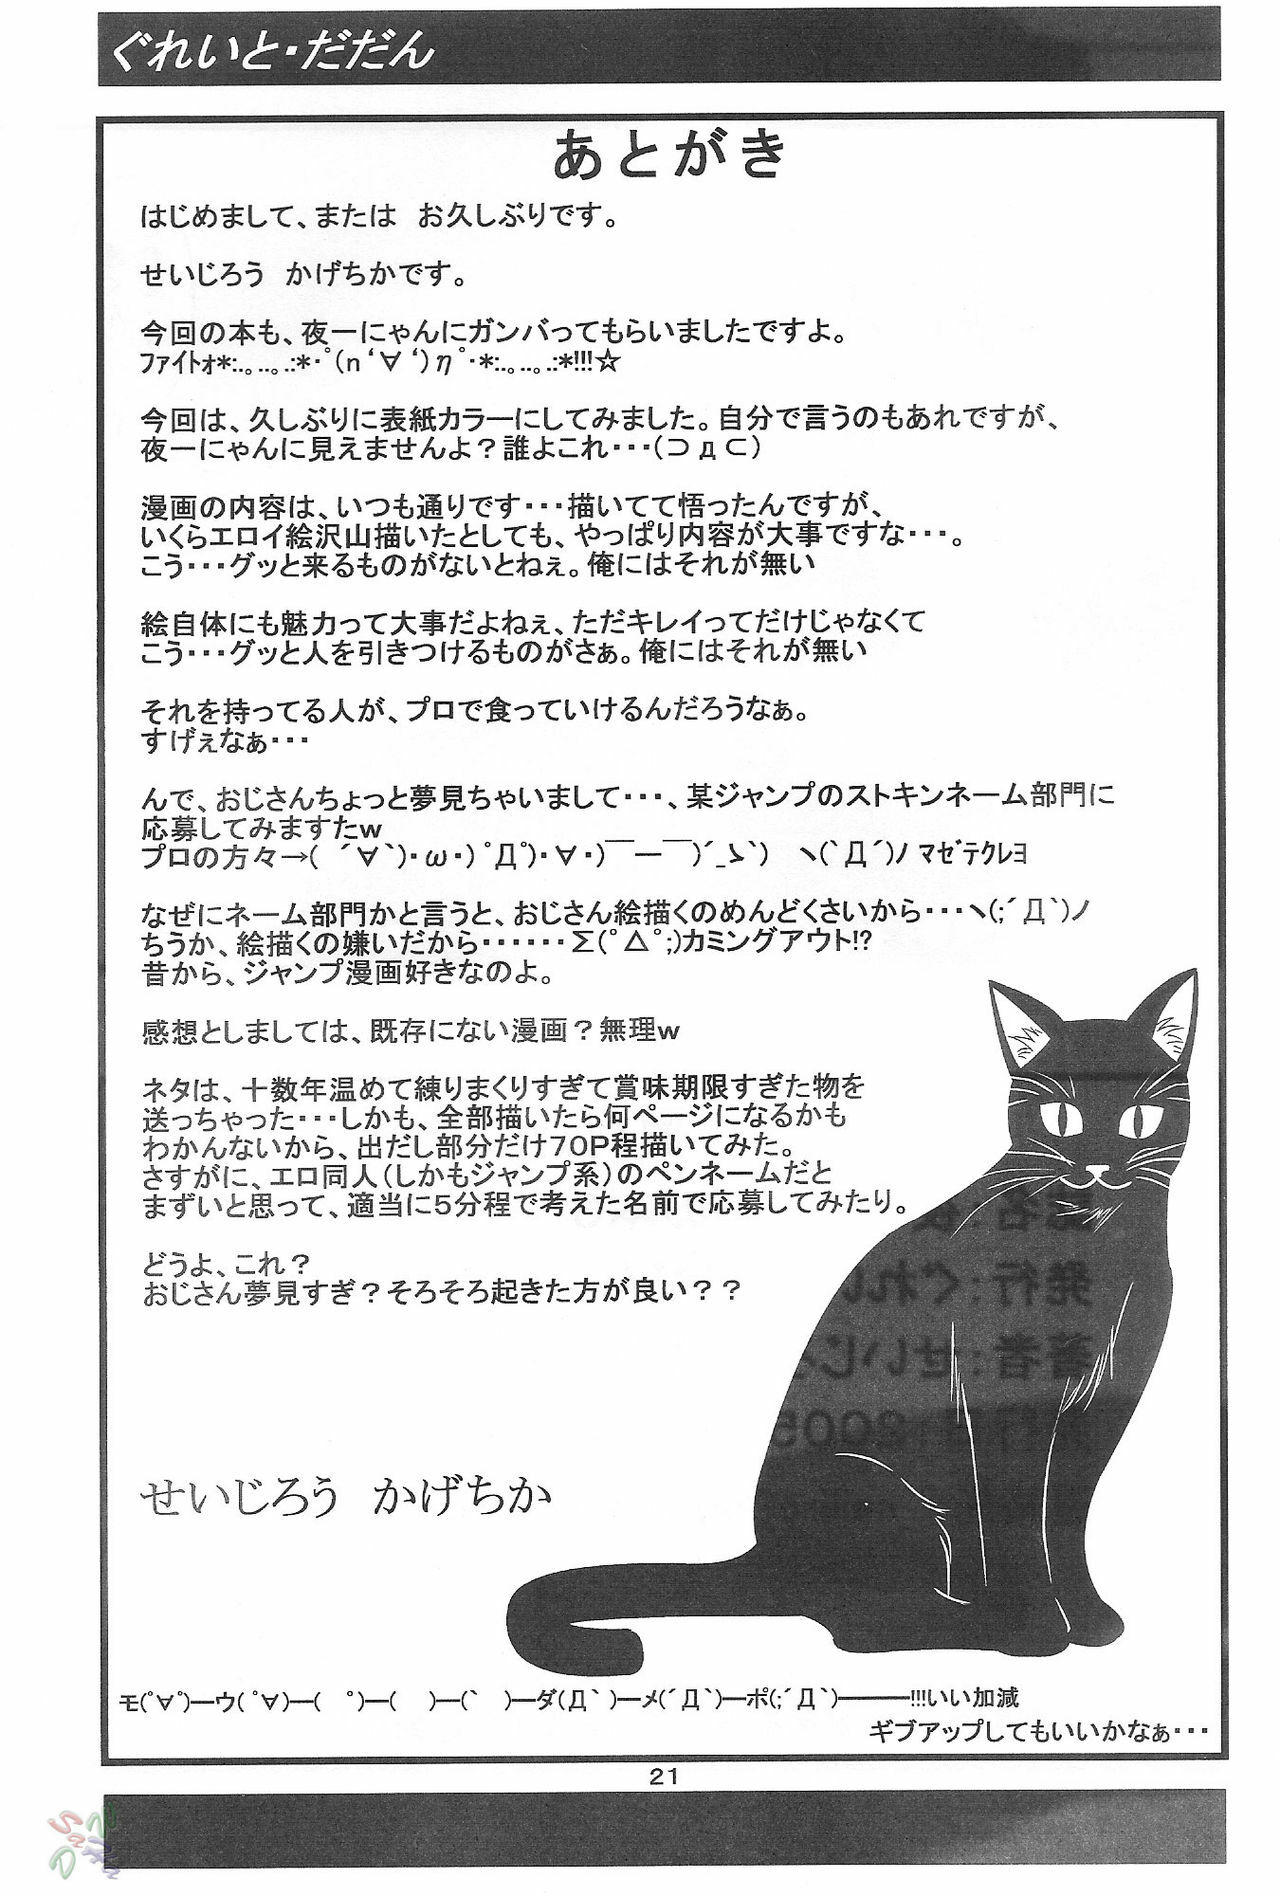 ぐれいと・だだん
あとがき
はじめまして、または　お久しぶりです。
せいじろう　かげちかです。
今回の本も、夜一にゃんにガンバってもらいましたですよ。
ﾌｧｲﾄｫ*:.｡..｡.:*･ﾟ(n‘∀‘)ηﾟ･*:.｡..｡.:*!!!☆
今回は、久しぶりに表紙カラーにしてみました。自分で言うのもあれですが、
夜一にゃんに見えませんよ？誰よこれ・・・(⊃д⊂)
漫画の内容は、いつも通りです・・・描いてて悟ったんですが、
いくらエロイ絵沢山描いたとしても、やっぱり内容が大事ですな・・・。
こう・・・グッと来るものがないとねぇ。俺にはそれが無い
絵自体にも魅力って大事だよねぇ、ただキレイってだけじゃなくて
こう・・・グッと人を引きつけるものがさぁ。俺にはそれが無い
それを持ってる人が、プロで食っていけるんだろうなぁ。
すげぇなぁ・・・
んで、おじさんちょっと夢見ちゃいまして・・・、某ジャンプのストキンネーム部門に
応募してみますたｗ
プロの方々→( ´∀`)・ω・) ﾟДﾟ)・∀・)￣ー￣)´_ゝ`)　ヽ(`Д´)ﾉ ﾏｾﾞﾃｸﾚﾖ
なぜにネーム部門かと言うと、おじさん絵描くのめんどくさいから・・・ヽ(;´Д`)ノ
ちうか、絵描くの嫌いだから・・・・・・Σ(ﾟ△ﾟ;)カミングアウト!?
昔から、ジャンプ漫画好きなのよ。
感想としましては、既存にない漫画？無理ｗ
ネタは、十数年温めて練りまくりすぎて賞味期限すぎた物を
送っちゃった・・・しかも、全部描いたら何ページになるかも
わかんないから、出だし部分だけ70P程描いてみた。
さすがに、エロ同人(しかもジャンプ系)のペンネームだと
まずいと思って、適当に5分程で考えた名前で応募してみたり。
どうよ、これ？
おじさん夢見すぎ？そろそろ起きた方が良い？？
せいじろう　かげちか
モ(ﾟ∀ﾟ)━ウ( ﾟ∀)━(　ﾟ)━(　)━(`　)━ダ(Д` )━メ(´Д`)━ポ(;´Д`)━━━!!!いい加減
ギブアップしてもいいかなぁ・・・
21